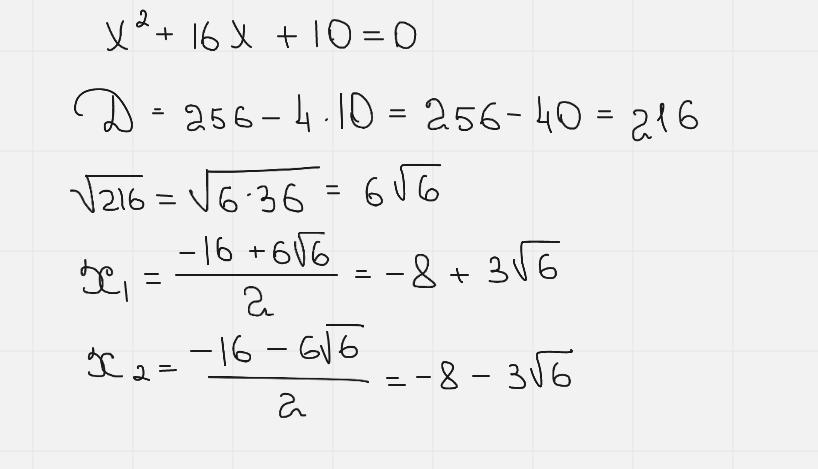 x² + 16x + 10 = 0
D = 256 - 4 · 10 = 256 - 40 = 216
√216 = √(6·36) = 6√6
x₁ = (-16 + 6√6)/2 = -8 + 3√6
x₂ = (-16 - 6√6)/2 = -8 - 3√6